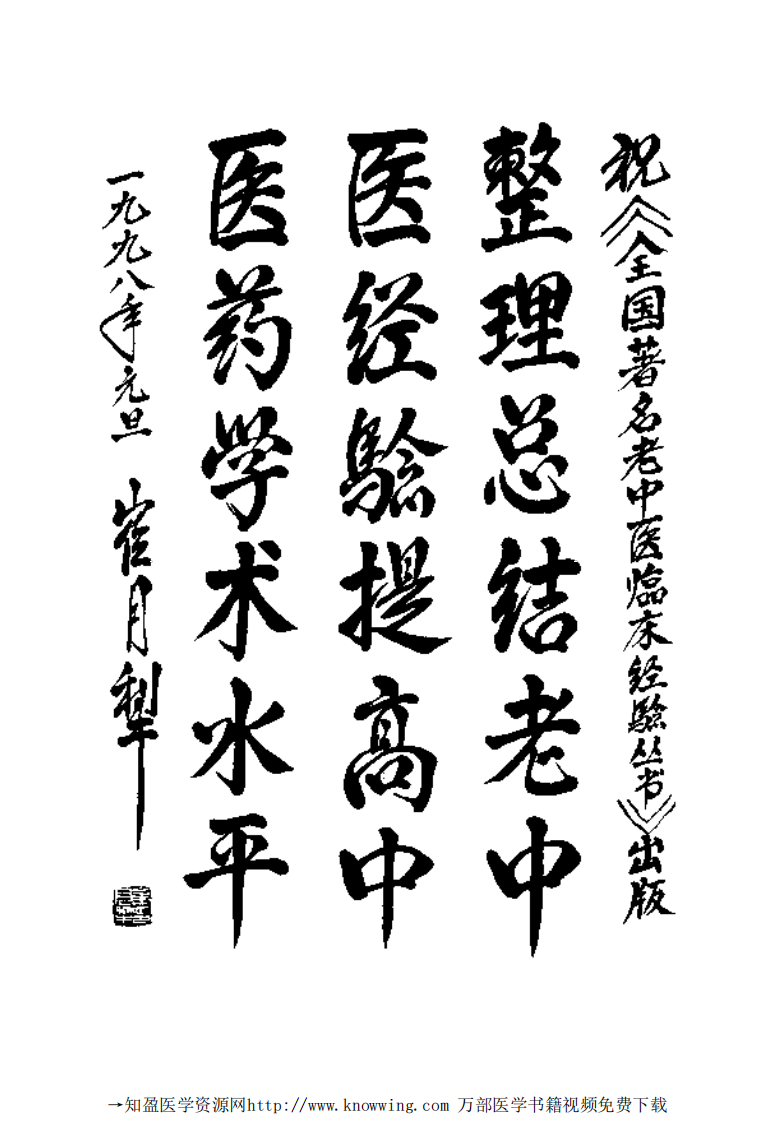 祝《全国著名老中医临床经验丛书》出版
整理总结老中
医经验提高中
医药学术水平
一九九八年元旦 崔月犁
→知盈医学资源网http://www.knowwing.com 万部医学书籍视频免费下载